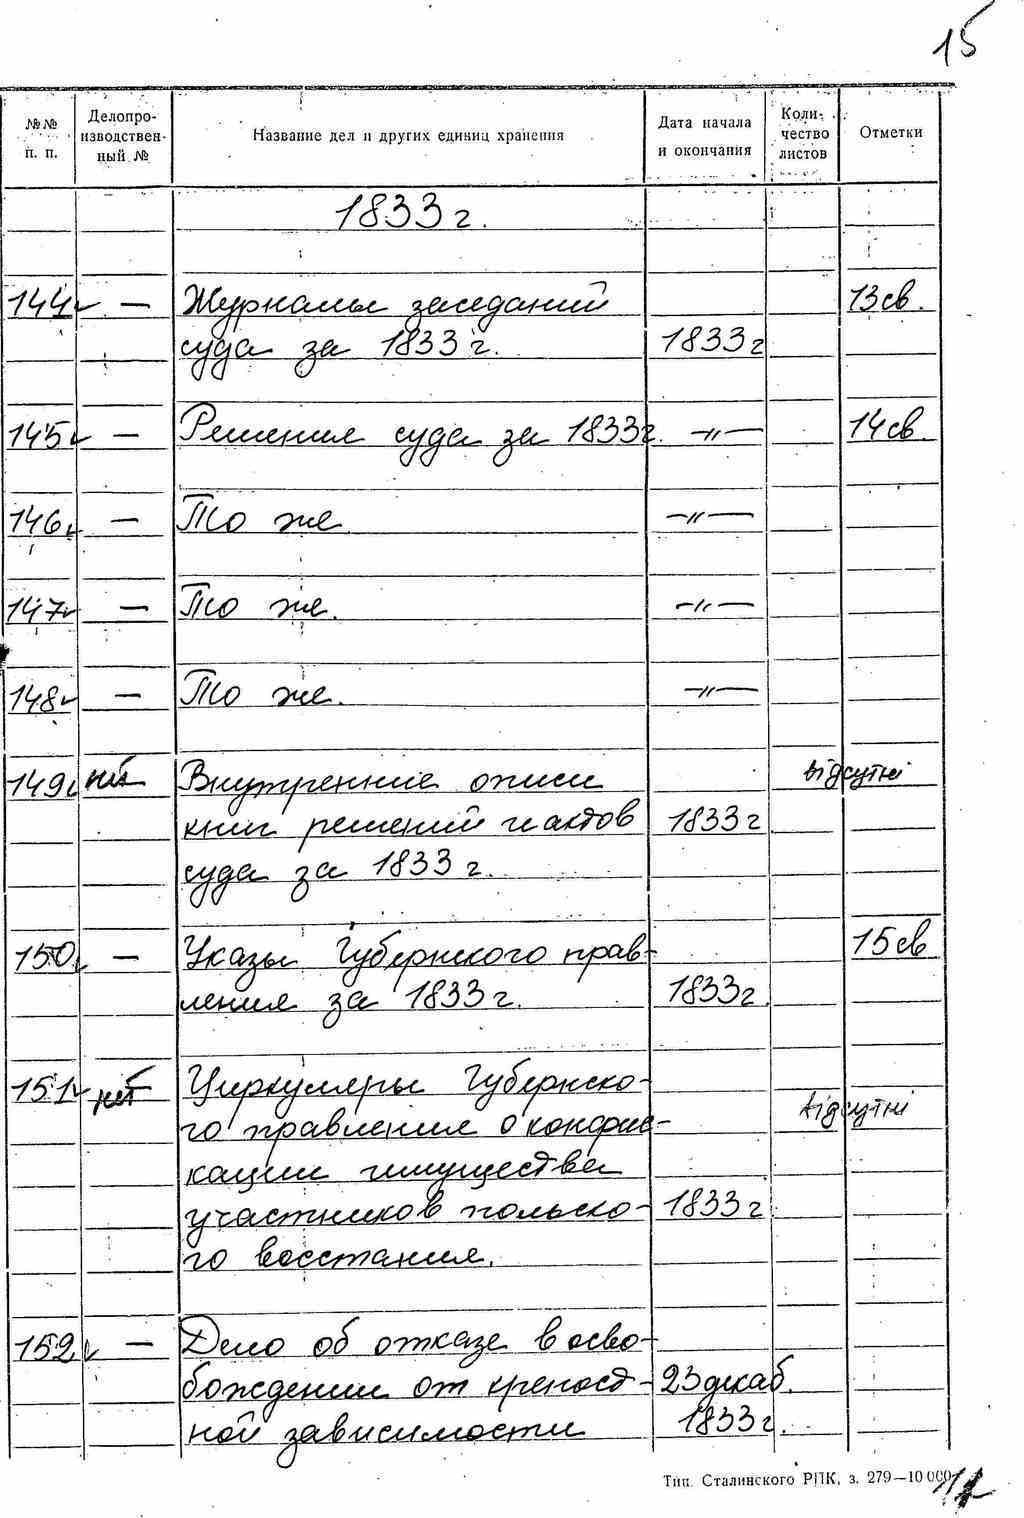 15
№№ п. п. Делопроизводственный № Название дел и других единиц хранения Дата начала и окончания Количество листов Отметки
1833 г.
144 — Журналы заседаний 13 св.
суда за 1833 г. 1833 г
145 — Решения суда за 1833 г. —"— 14 св.
146 — То же —"—
147 — То же. —"—
148 — То же. —"—
149 нет Внутренние описи відсутні
книг решений и актов 1833 г
суда за 1833 г.
150 — Указы Губернского прав- 15 св
ления за 1833 г. 1833 г.
151 нет Циркуляры Губернско- відсутні
го правления о конфис-
кации имущества
участников польско- 1833 г
го восстания.
152 — Дело об отказе в осво-
бождении от крепост- 23 декаб.
ной зависимости 1833 г.
Тип. Сталинского РПК, з. 279—10 000